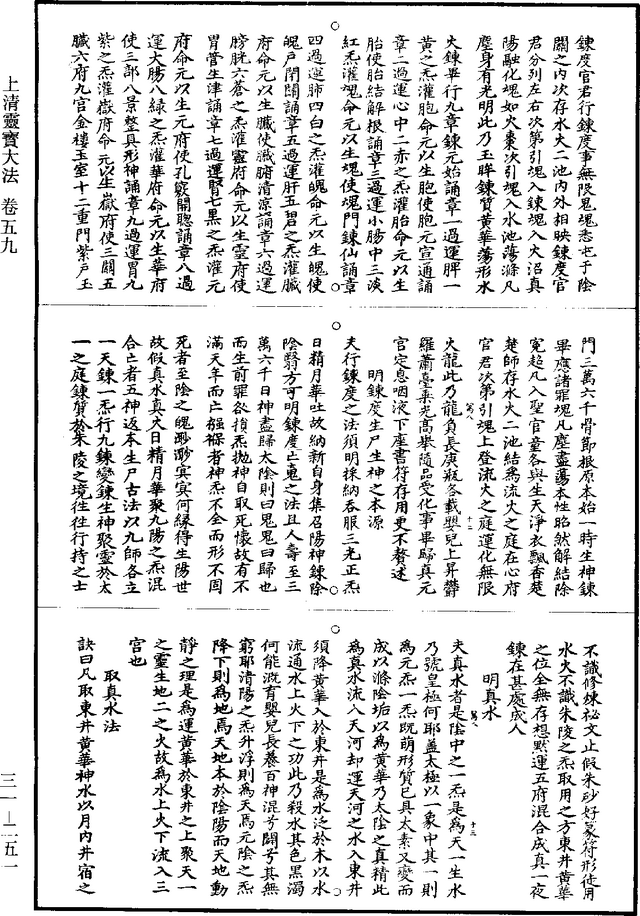 上清靈寶大法 卷五九
三一—二五一
鍊度官君行鍊度事無限鬼魂悉屯于陰
關之内次存水火二池内外相映鍊度官
君分列左右次第引魂入鍊魂入大沼真
陽融化魂如火棗次引魂入水池蕩滌凡
塵身有光明此乃玉眸鍊質黃華蕩形水
火鍊畢行九章鍊元始誦章一過運脾一
黃之炁灌胞命元以生胞使胞元宣通誦
章二過運心中二赤之炁灌胎命元以生
胎使胎結解根誦章三過運小腸中三淡
紅炁灌魂命元以生魂使魂門鍊仙誦章
四過運肺四白之炁灌魄命元以生魄使
魄戶閉關誦章五過運肝五碧之炁灌臟
府命元以生臟使臟腑清涼誦章六過運
膀胱六蒼之炁灌靈府命元以生靈府使
胃管生津誦章七過運腎七黑之炁灌元
府命元以生元府使孔竅開聰誦章八過
運大腸八綠之炁灌華府命元以生華府
使三部八景整具形神誦章九過運胃九
紫之炁灌嶽府命元以生嶽府使三關五
臟六府九宮金樓玉室十二重門紫戶玉
門三萬六千骨節根原本始一時生神鍊
畢應諸罪魂凡塵盡蕩本性昭然解結除
冤超凡入聖官童各與生天淨衣飄香楚
楚師存水火二池結為流火之庭在心府
官君次第引魂上登流火之庭運化無限
火龍此乃龍負長庚瓶各載嬰兒上昇欝
羅蕭臺乘光高舉隨品受化事畢歸真元
宮定息咽液下座書符存用更不贅述
明鍊度生尸生神之本源
夫行鍊度之法須明採納吞服三光正炁
日精月華吐故納新自身集召陽神鍊除
陰翳方可明鍊度亡䰟之法且人壽至三
萬六千日神盡歸太陰則曰鬼鬼曰歸也
而生前罪欲損炁拋神自取死懷故有不
滿天年而亡襁褓者神炁不全而形不固
死者至陰之魄渺渺寞寞何緣得生陽世
故假真水真火日精月華聚九陽之炁混
合亡者五神返本生尸古法以九師各立
一天鍊一炁行九鍊變鍊生神聚靈於太
一之庭鍊質於朱陵之境往往行持之士
不識修煉祕文止假朱砂好篆符形徒用
水火不識朱陵之炁取用之方東井黃華
之位全無存想默運五府混合成真一夜
鍊在甚處成人
明真水
夫真水者是陰中之一炁是為天一生水
乃號皇極何耶蓋太極以一象中其一則
為元炁一炁既萌形質已具太素又變而
成以滌陰垢以為黃華乃太陰之真精此
為真水流入天河却運天河之水入東井
須降黃華入於東井是為水泛於木以水
流通水上火下之功此乃殺水其色黑濁
何能溉育嬰兒長養百神混兮闢兮其無
窮耶清陽之炁升浮則為天焉元陰之炁
降下則為地焉天地本於陰陽而天地動
靜之理是為運黃華於東井之上聚天一
之靈生地二之火故為水上火下流入三
宮也
取真水法
訣曰凡取東井黃華神水以月内井宿之